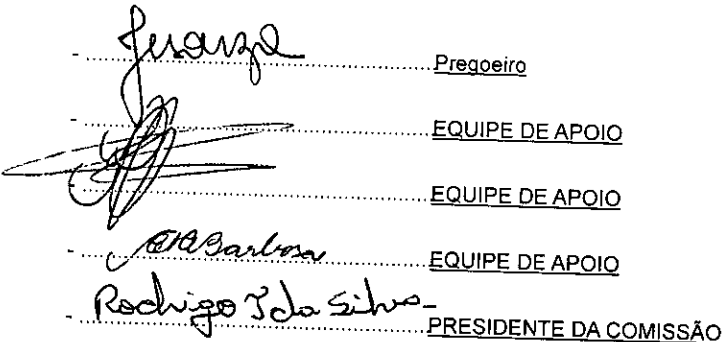 - ........ Pregoeiro
- ........ EQUIPE DE APOIO
- ........ EQUIPE DE APOIO
- Barbosa ........ EQUIPE DE APOIO
Rodrigo da Silva
- ........ PRESIDENTE DA COMISSÃO